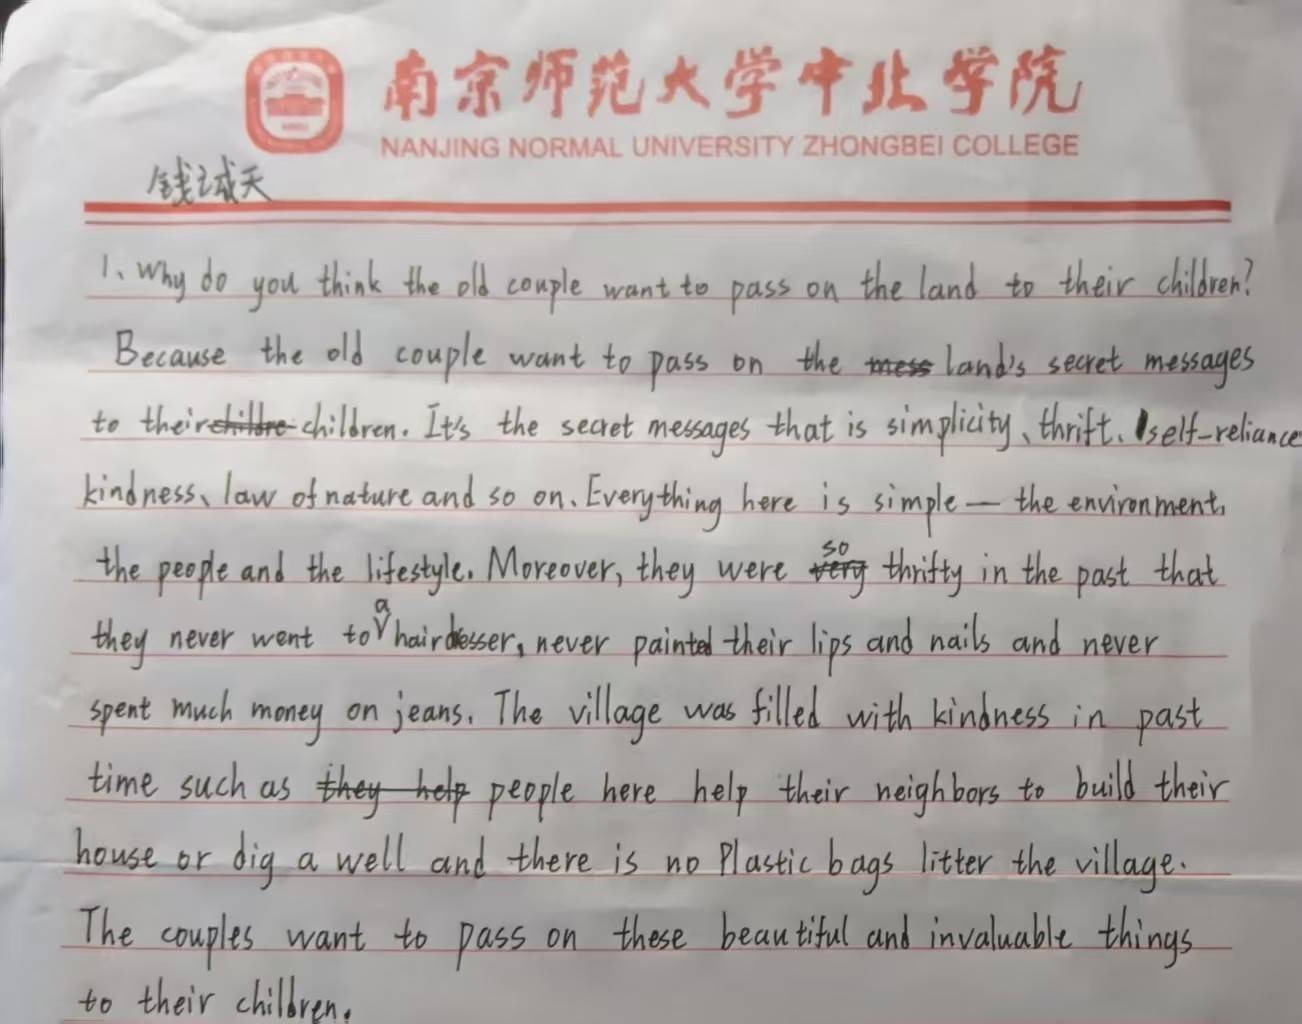 南京师范大学中北学院
NANJING NORMAL UNIVERSITY ZHONGBEI COLLEGE
钱诚天
1、Why do you think the old couple want to pass on the land to their children?
Because the old couple want to pass on the mess land's secret messages
to their childre children. It's the secret messages that is simplicity、thrift、self-reliance
kindness、law of nature and so on. Everything here is simple — the environment,
the people and the lifestyle. Moreover, they were very so thrifty in the past that
they never went to a hairdesser, never painted their lips and nails and never
spent much money on jeans. The village was filled with kindness in past
time such as they help people here help their neighbors to build their
house or dig a well and there is no Plastic bags litter the village.
The couples want to pass on these beautiful and invaluable things
to their children.